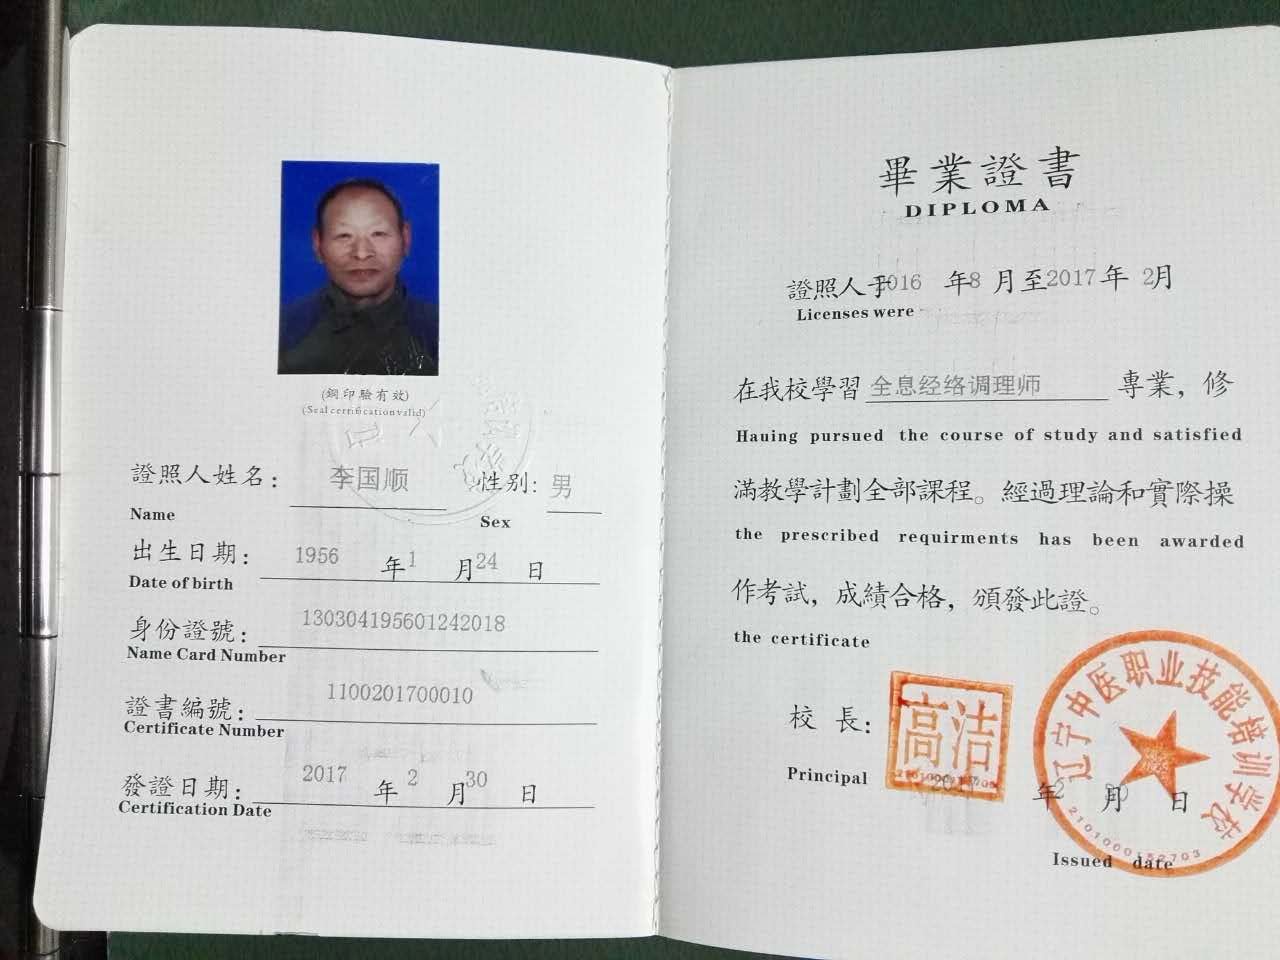 (鋼印驗有效)
(Seal certification valid)
證照人姓名： 李国顺 性别: 男
Name Sex
出生日期： 1956 年 1 月 24 日
Date of birth
身份證號： 130304195601242018
Name Card Number
證書編號： 1100201700010
Certificate Number
發證日期： 2017 年 2 月 30 日
Certification Date
畢業證書
DIPLOMA
證照人于2016 年8 月至2017年 2月
Licenses were
在我校學習 全息经络调理师 專業，修
Hauing pursued the course of study and satisfied
滿教學計劃全部課程。經過理論和實際操
the prescribed requirments has been awarded
作考試，成績合格，頒發此證。
the certificate
校 長： 高洁
Principal
2017 年 2 月 日
Issued date
辽宁中医职业技能培训学校
2101000152703